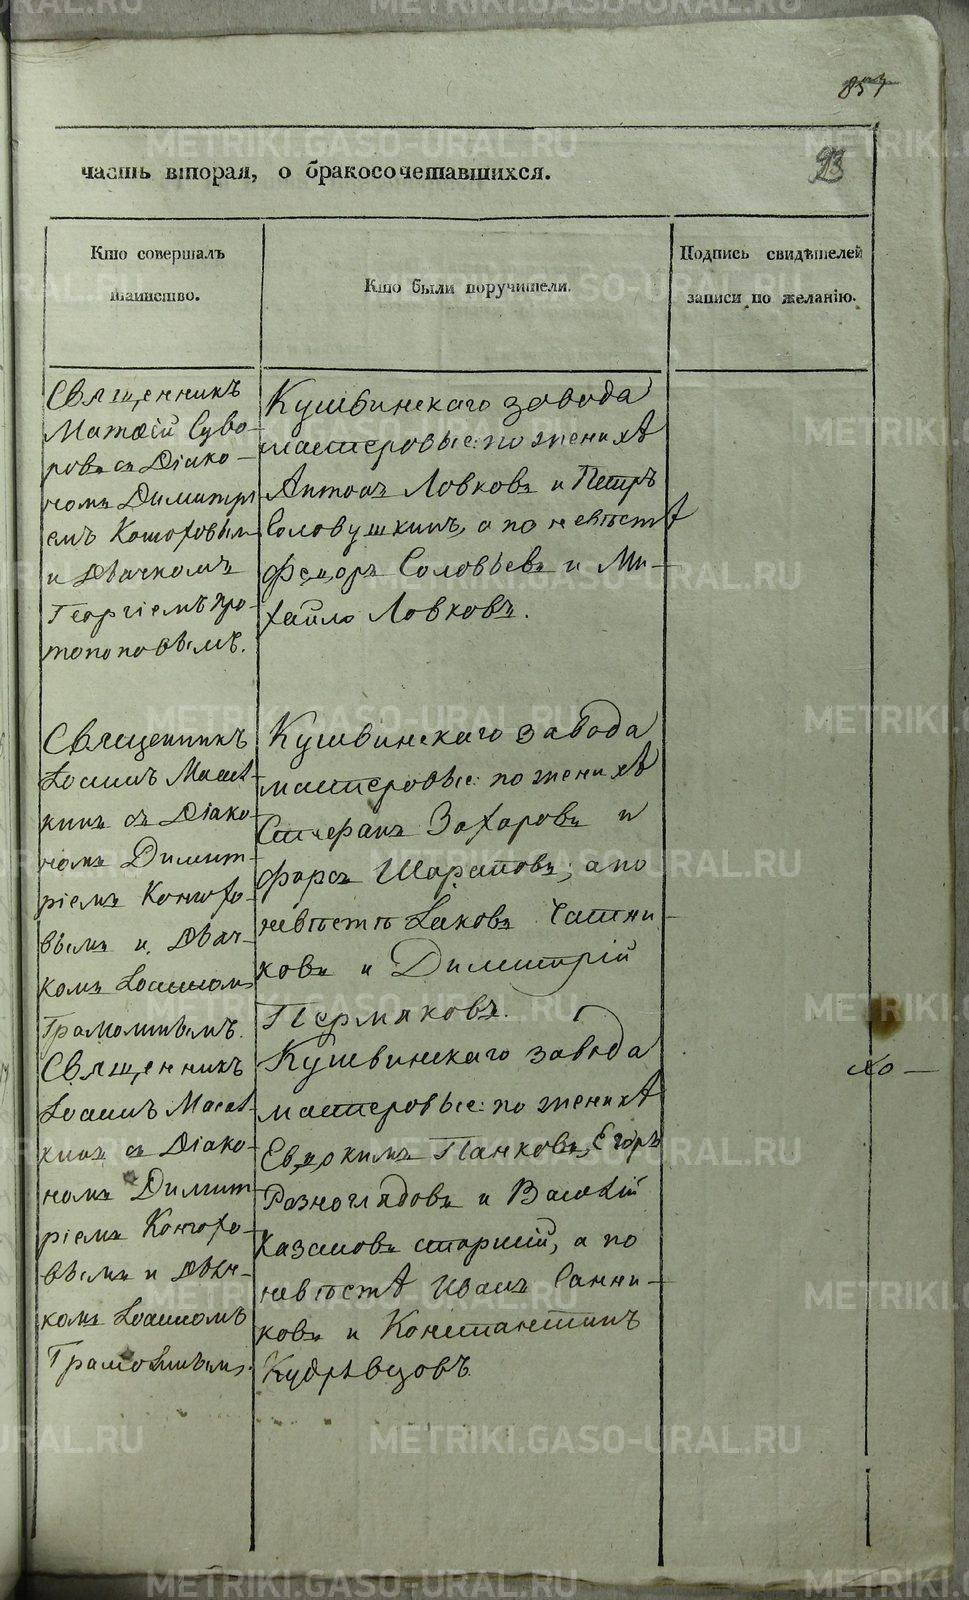 857
часть вторая, о бракосочетавшихся.
93
Кто совершалъ
таинство.
Кто были поручители.
Подпись свидѣтелей
записи по желанію.
Священникъ
Матѳій Суво-
ровъ съ Діако-
номъ Димитрі
емъ Конюховым
и Дьячкомъ
Георгіемъ Про-
топоповымъ.
Кушвинскаго завода
мастеровые: по женихѣ
Антонъ Ловковъ и Петръ
Соловушкинъ, а по невѣстѣ
Федоръ Соловьевъ и Ми-
хайло Ловковъ.
Священникъ
Іоаннъ
съ Діако-
номъ Димит-
ріемъ Конюхо-
вымъ и Дьяч-
комъ Іоанномъ
Кушвинскаго завода
мастеровые: по женихѣ
Стефанъ Захаровъ и
Шараповъ; а по
невѣстѣ Іаковъ
и Димитрій
Пермяковъ.
Священникъ
Іоаннъ
съ Діако-
номъ Димит-
ріемъ Конюхо-
вымъ и Дьяч-
комъ Іоанномъ
Кушвинскаго завода
мастеровые: по женихѣ
Евдокимъ Панковъ, Егоръ
Разноглядовъ и Василій
Казанов старшій, а по
невѣстѣ Иванъ Санни-
ковъ и Константинъ
Кудрявцовъ.
METRIKI.GASO-URAL.RU